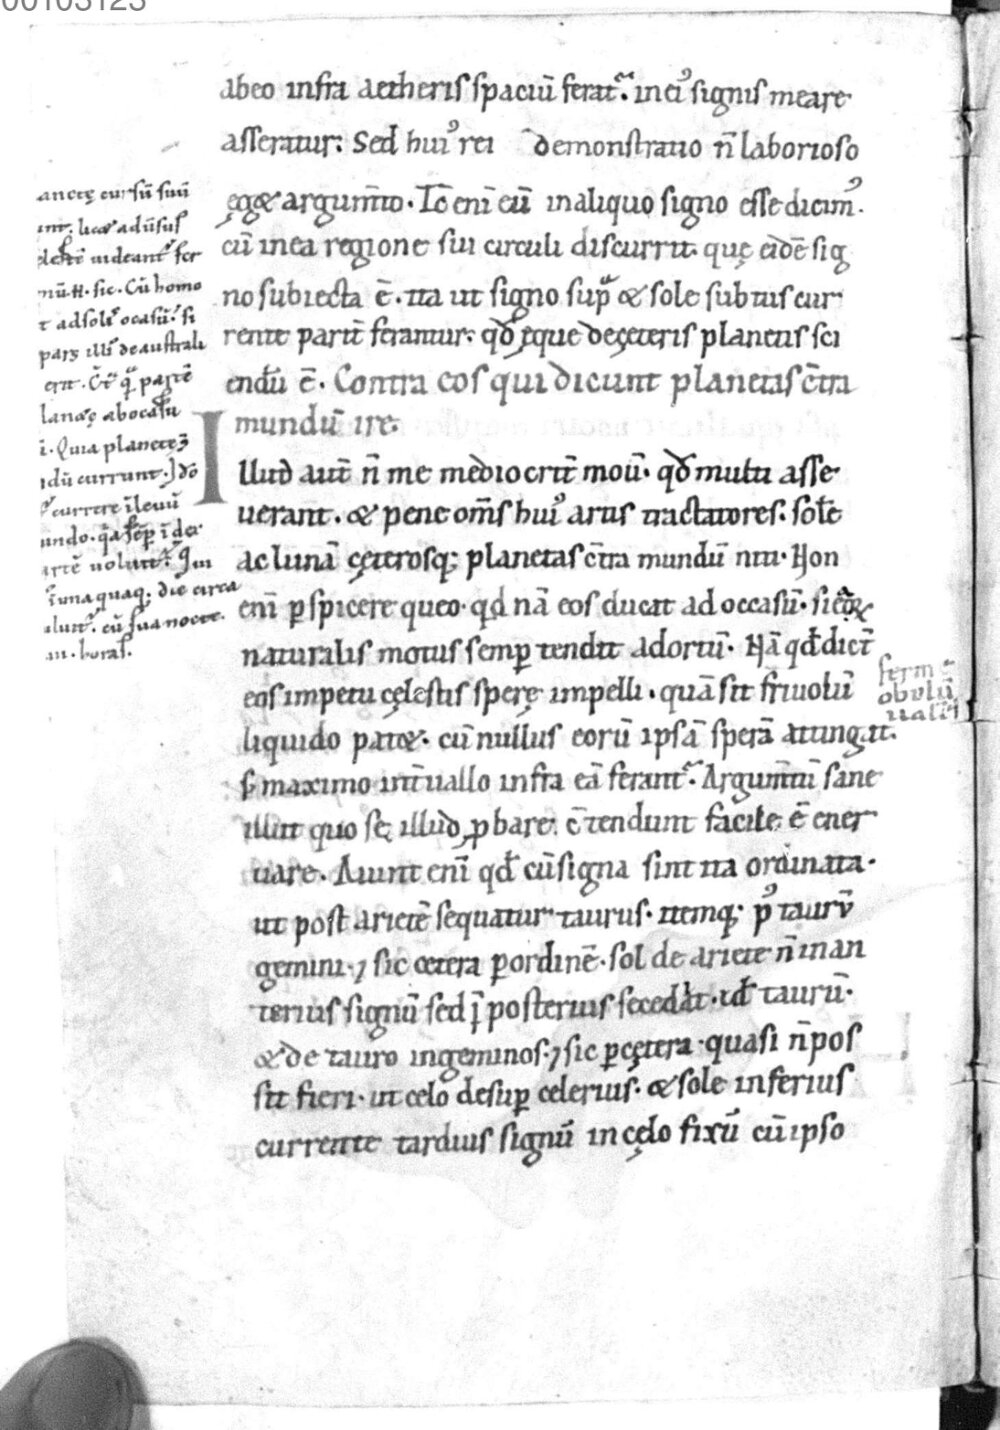 00103123
abeo infra aetheris spaciū ferat᷑. in eiꝰ signis meare
asseratur. Sed huiꝰ rei demonstratio n̄ laborioso
ęget argum̄to. Tc̄ enī eū in aliquo signo esse dicimꝰ.
cū in ea regione sui circuli discurrit. quę eidē sig
no subiecta ē. ita ut signo sup᷑ & sole subtus cur
rente parit̄ feramur. qđ ęque de ceteris planetis sci
endū ē. Contra eos qui dicunt planetas c̄tra
mundū ire.
Illud aut̄ n̄ me mediocrit̄ mou&. qđ multi asse
uerant. & pene om̄s huiꝰ artis tractatores. solē
ac lunā cęterosq; planetas c̄tra mundū niti. Non
enī ꝑspicere queo. qđ nā eos ducat ad occasū. si eoꝝ
naturalis motus semꝑ tendit ad ortū. Nā qđ dict̄
eos impetu cęlestis sperę impelli. quā sit friuolū
liquido pat&. cū nullus eorū ipsā sperā attingit.
s; maximo int̄uallo infra eā ferant᷑. Argum̄tū sane
illut quo sę illud ꝓbare c̄tendunt facile ē ener
uare. Aiunt enī qđ cū signa sint ita ordinata.
ut post arietē sequatur taurus. itemq; pꝰ taurū
gemini. ⁊ sic cetera ꝑ ordinē. sol de ariete n̄ in an
terius signū sed ī posterius secedat. id ē taurū.
& de tauro in geminos. ⁊ sic ꝑ cętera. quasi n̄ pos
sit fieri. ut celo desuꝑ celerius. & sole inferius
currente tardius signū in cęlo fixū cū ipso
anetę cursū suū
lic& adūsus
uideant᷑ fer
sic. Cū homo
ad solis occasū. si
pars illi de australi
erit. parte
ab occasu
ī. Quia planetę
currunt.
currere
uolunt᷑.
una quaq; die circa
cū sua nocte.
horas.